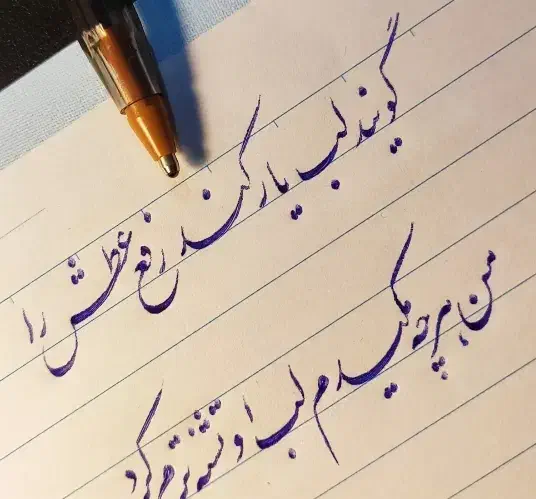 گویند لب یار کند رفع عطش را
من هرچه مکیدم لب او تشنه ترم کرد